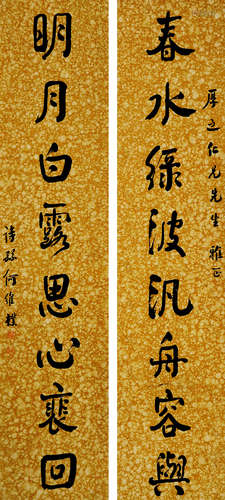 厚之仁兄先生雅正
春水綠波汎舟容與
明月白露思心裵回
詩孫何維樸